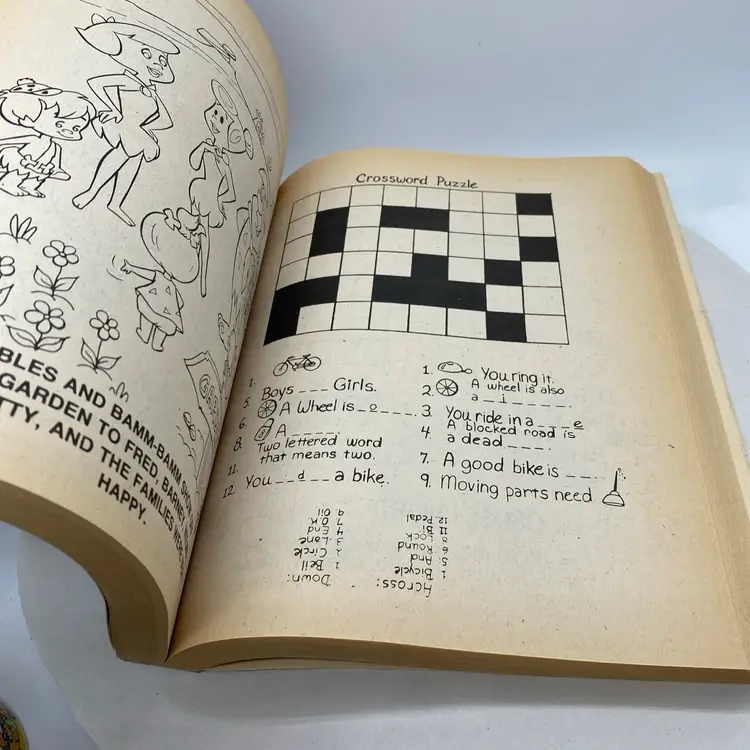 BLES AND BAMM-BAMM SHOW
GARDEN TO FRED, BARNEY,
TTY, AND THE FAMILIES WERE
HAPPY.
Crossword Puzzle
1.
5. Boys _ _ _ Girls.
6. A Wheel is _ o _ _ _.
8. A _ _ _ _.
11. Two lettered word
that means two.
12. You _ _ d _ _ a bike.
1. You ring it.
2. A wheel is also
a _ i _ _ _ _.
3. You ride in a _ _ _ e
4. A blocked road is
a dead _ _ _.
7. A good bike is _ _.
9. Moving parts need
Across:
1 Bicycle
5 And
6 Round
8 Lock
11 Bi
12 Pedal
Down:
1 Bell
2 Circle
3 Lane
4 End
7 O.K.
9 Oil